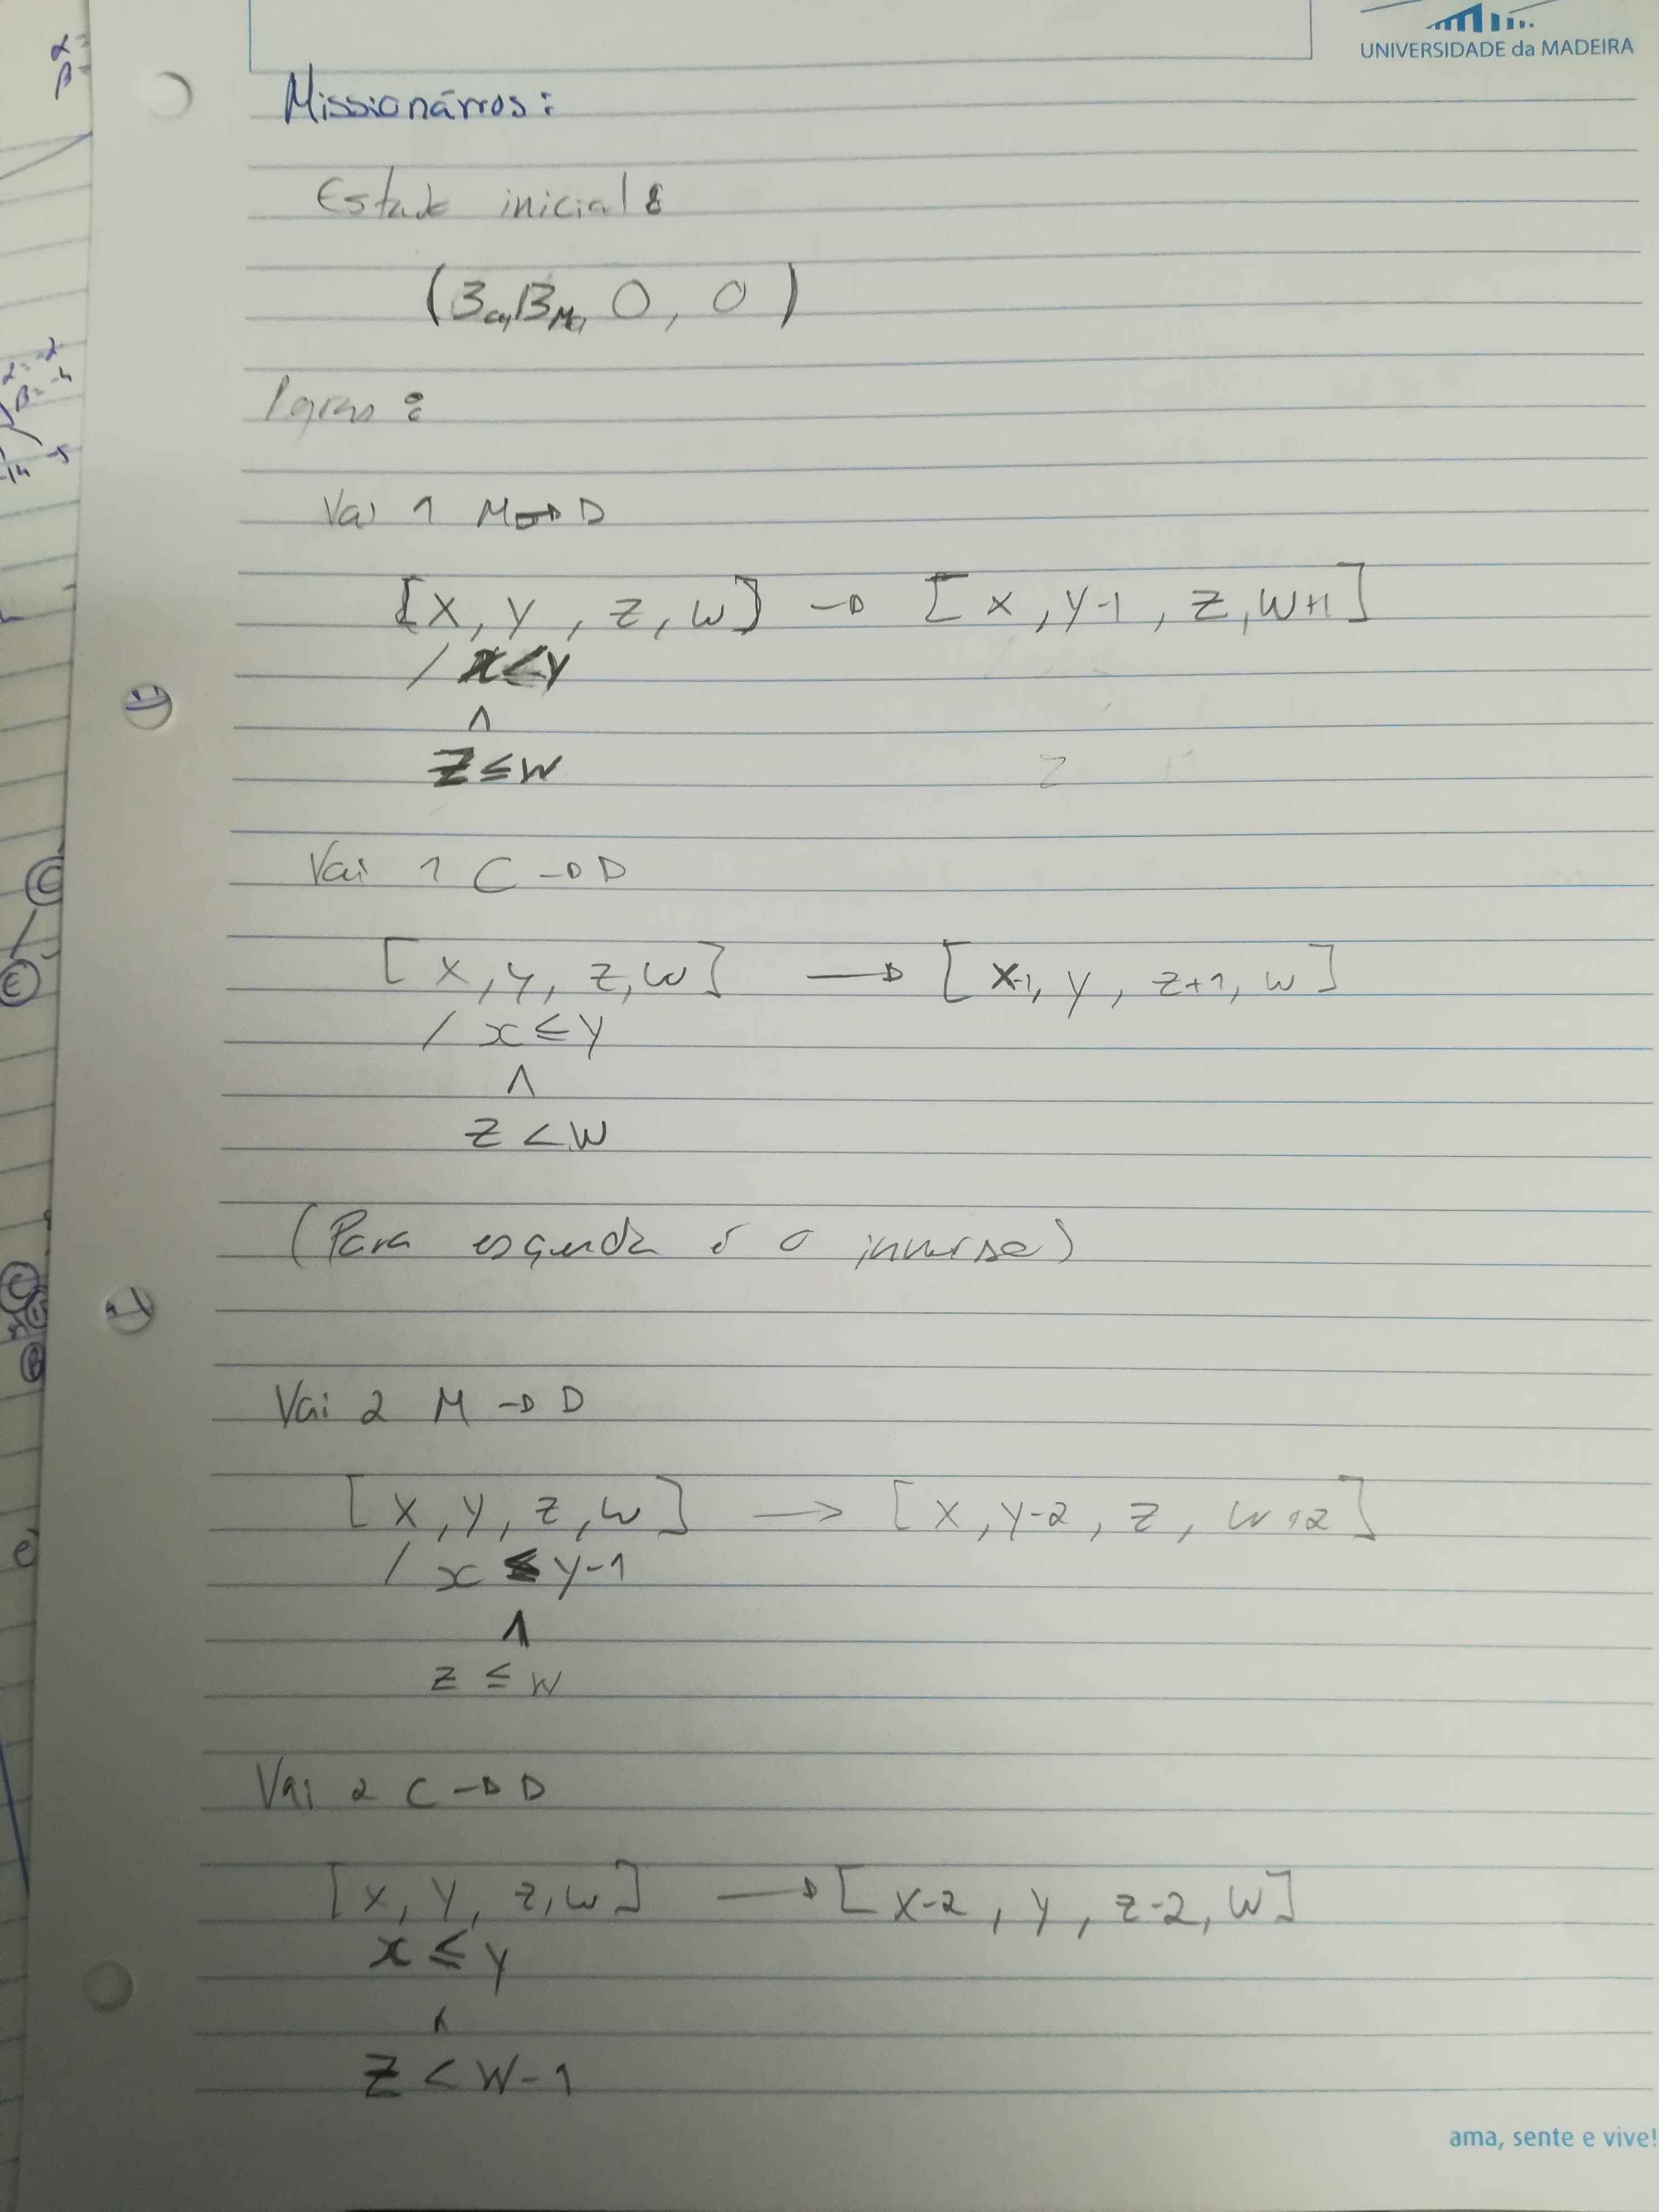 UNIVERSIDADE da MADEIRA
Missionários:
Estado inicial:
(3C, 3M, 0, 0)
Vai 1 M → D
[x, y, z, w] → [x, y-1, z, w+1]
/ x < y
∧
z ≤ w
Vai 1 C → D
[x, y, z, w] → [x-1, y, z+1, w]
/ x ≤ y
∧
z < w
(Para esquerda é o inverso)
Vai 2 M → D
[x, y, z, w] → [x, y-2, z, w+2]
/ x < y-1
∧
z ≤ w
Vai 2 C → D
[x, y, z, w] → [x-2, y, z-2, w]
x ≤ y
∧
z < w-1
ama, sente e vive!